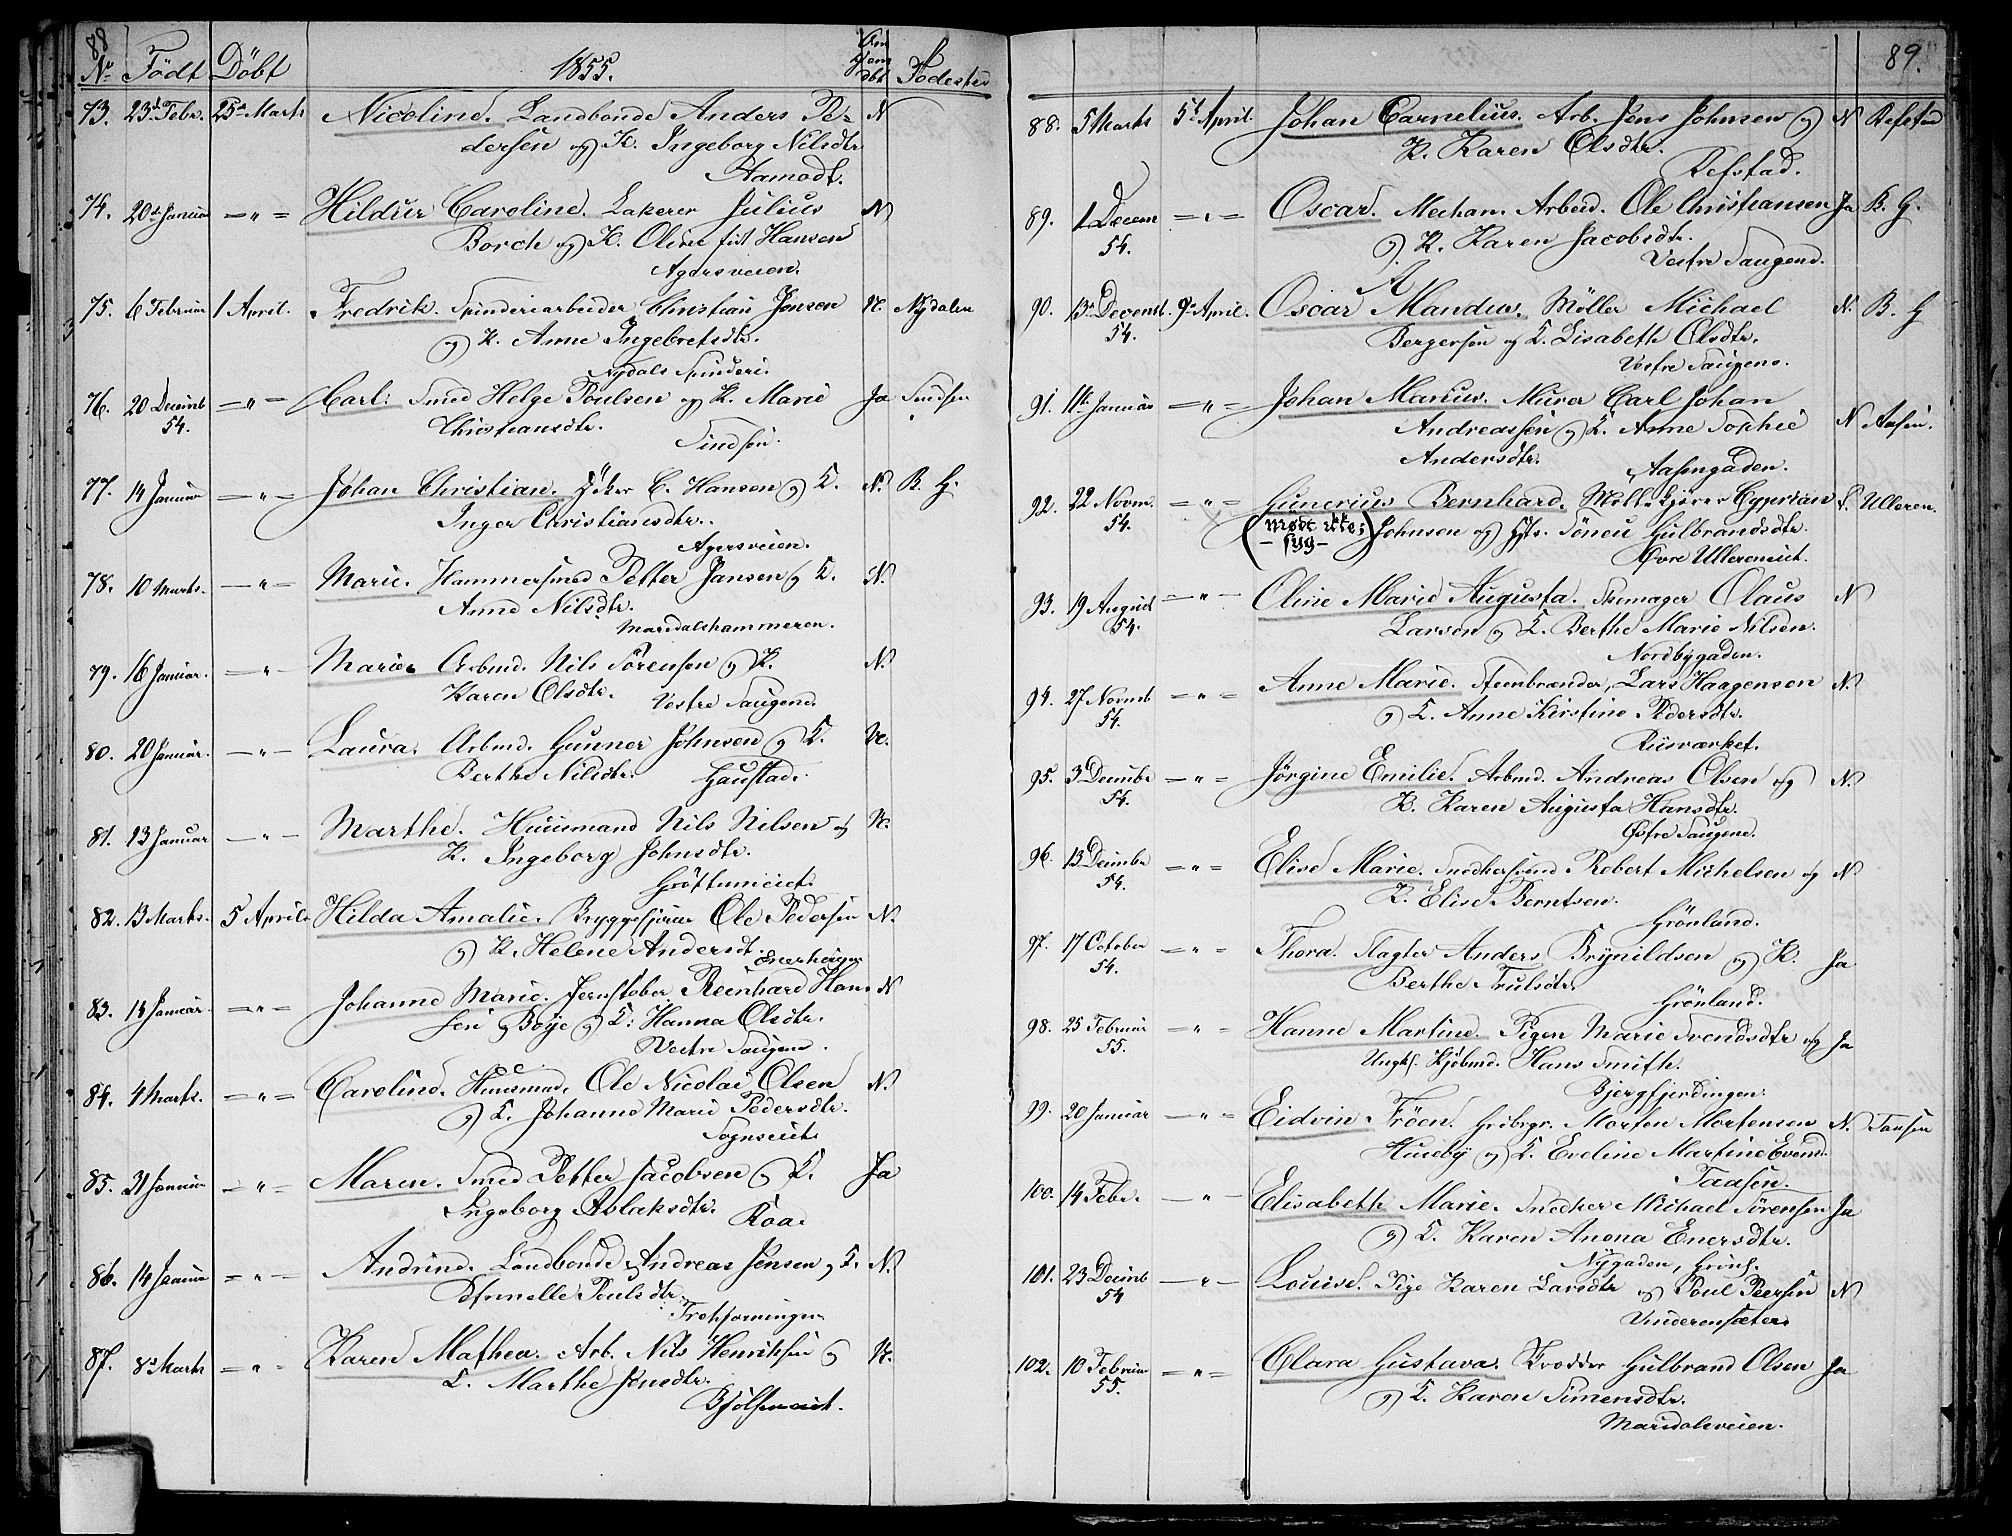 88
No Födt Döbt 1855. Om hjemdbt Födested
73. 23d Febr. 25de Marts Nicoline. Landbonde Anders Pe- N
dersen og K. Ingeborg Nilsdtr.
Aamodt.
74. 20de Januar — " — Hildur Caroline. Lakerer Julius N
Borch og K. Oline født Hansen
Agersveien.
75. 6 Februar 1 April. Fredrik. Spinderiarbeider Christian Jensen N. Nydalen
og K. Anne Ingebretsdtr.
Nydals Spinderi.
76. 20 Decemb — " — Carl. Smed Helge Poulsen og K. Marie Ja Sindsen
54. Christiansdtr.
Sindsen.
77. 14 Januar — " — Johan Christian. C. Hansen og K. N. B. G.
Inger Christiansdtr.
Agersveien.
78. 10 Marts. — " — Marie. Hammersmed Petter Jansen og K. N.
Anne Nilsdtr.
Maridalshammeren.
79. 16 Januar. — " Marie. Arbmd. Nils Sörensen og K. N.
Karen Olsdtr. Vestre Saugene.
80. 20 Januar. — " — Laura. Arbmd. Gunner Johnsen og K. N.
Berthe Nilsdtr. Gaustad.
81. 23 Januar — " — Marthe. Huusmand Nils Nilsen og N.
K. Ingeborg Johnsdtr.
Gröttumeiet.
82. 13 Marts. 5 April. Hilda Amalie. Bryggesjouer Ole Pedersen N.
og K. Helene Andersdt.
Enerhaugen
83. 14 Januar. — " — Johanne Marie. Jernstöber Reinhard Han- N
sen Boye og K. Hanna Olsdtr.
Vestre Saugene.
84. 4 Marts. — " — Caroline. Huusmand, Ole Nicolai Olsen N.
og K. Johanne Marie Pedersdtr.
Sognseiet.
85. 31 Januar — " — Maren. Smed Petter Jacobsen og K. Ja
Ingeborg Aslaksdtr. Roa.
86. 14 Januar — " — Andrine. Landbonde Andreas Jensen og K. N.
Pernelle Poulsdtr.
87. 8de Marts — " — Karen Mathea. Arb. Nils Henriksen og N.
K. Marthe Jensdtr.
Bjölseneiet.
89.
88. 5 Marts 5te April. Johan Carnelius. Arb. Jens Johnsen og N Refstad
K. Karen Olsdtr.
Refstad.
89. 1 Decem — " — Oscar. Mechan. Arbeid. Ole Christiansen Ja B. G.
54. og K. Karen Jacobsdtr.
Vestre Saugene.
A
90. 13de Decemb. 9de April. Oscar Mandus. Möller Michael N. B. G
54. Bergersen og K. Lisabeth Olsdtr.
Vestre Saugene.
91. 11te Januar — " — Johan Marius. Murer Carl Johan
Andreassen og K. Anne Sophie N Aasen.
Andersdtr.
Aasengaden.
92. 22 Novm. — " — Gunerius Bernhard. Möllekjörer Cyprian S. Ulleren.
54. (møde ikke; Johnsen og Hst. Töneu Gulbrandsdtr.
— syg —) Övre Ullereneiet.
93. 19 August — " — Oline Marie Augusta. Skomager Olaus N
54. Larsen og K. Berthe Marie Nilsen.
Nordbygaden.
94. 27 Novemb — " — Anne Marie. Steenbrænder, Lars Haagensen N.
54. og K. Anne Kirstine Pedersdtr.
Riisværket.
95. 3 Decembr — " — Jörgine Emilie. Arbmd. Andreas Olsen og N.
54. K. Karen Augusta Hansdtr.
Østre Saugene.
96. 13 Decembr — " — Elise Marie. Snedkersvend Robert Michelsen og N
54. K. Elise Berntsen.
Grönland.
97. 17 October — " — Thora. Slagter Anders Brynildsen og K. Ja
54. Berthe Trulsdtr.
Grönland.
98. 25 Februar — " — Hanne Martine. Pigen Marie Svendsdtr og Ja
55. Ungk. Kjöbmd. Hans Smith.
Bjergfjerdingen.
99. 20 Januar — " — Eidvin Fröen. Grdbrgr. Morten Mortensen N. Taasen
Huseby og K. Eveline Martine Evend.
Taasen.
100. 14 Febr. — " — Elisabeth Marie. Snedker Michael Sörensen Ja
og K. Karen Anona Enersdtr.
Nygaden, Grünl.
101. 23 Decemb — " — Louise. Pige Karen Larsdtr og Poul Peersen N
54 Vinderensæter.
102. 10 Februar — " — Clara Gustava. Gulbrand Olsen Ja
55. og K. Karen Simensdtr.
Maridalsveien.